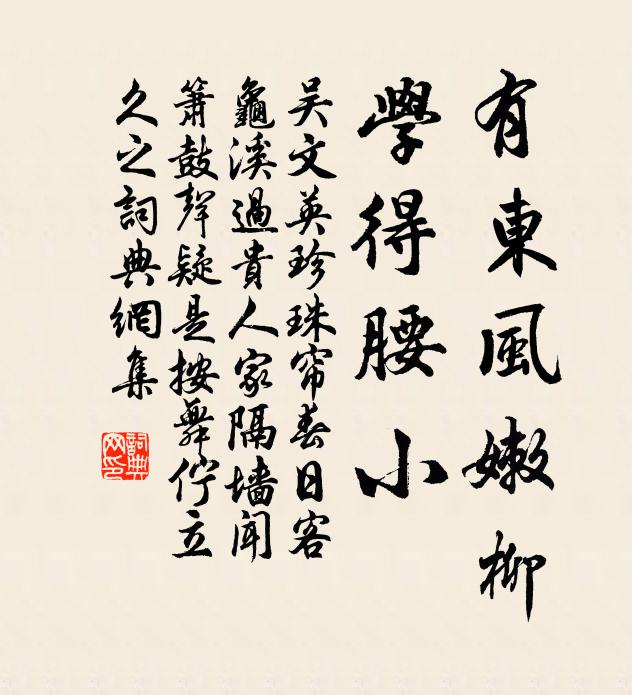 有東風嫩柳
學得腰小
吴文英珍珠帘春日客
龜溪過貴人家隔墙聞
簫鼓聲疑是按舞佇立
久之詞典網集
詞典網印